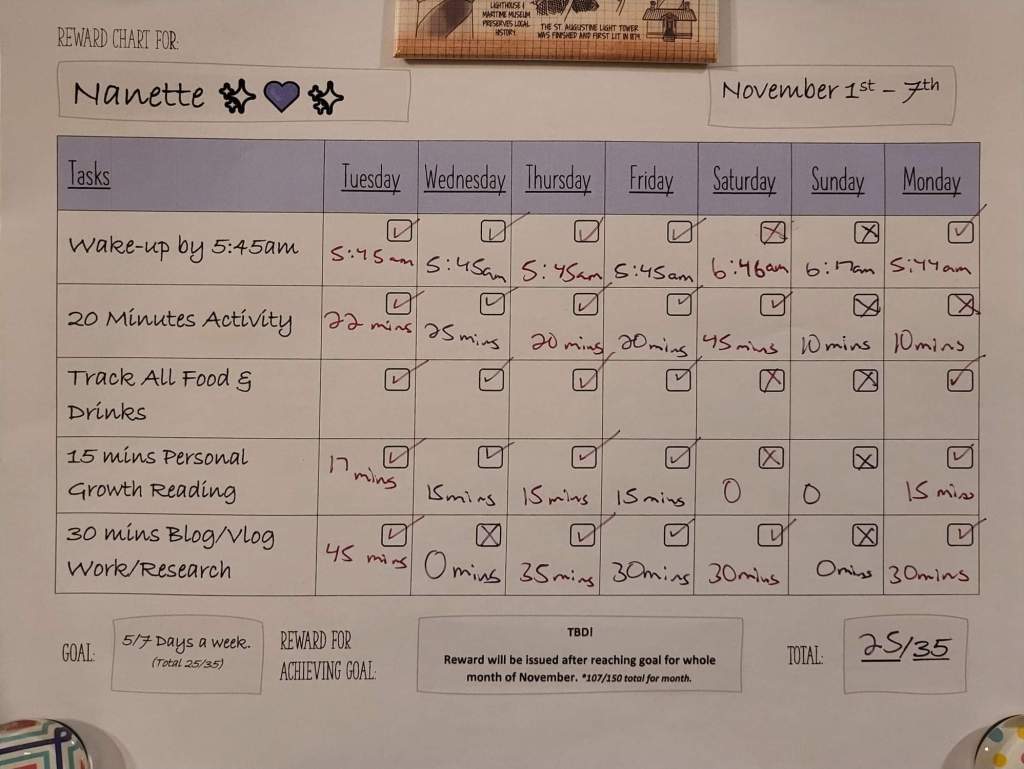 LIGHTHOUSE &
MARITIME MUSEUM
PRESERVES LOCAL
HISTORY.
THE ST. AUGUSTINE LIGHT TOWER
WAS FINISHED AND FIRST LIT IN 1874.
REWARD CHART FOR:
Nanette
November 1st - 7th
Tasks Tuesday Wednesday Thursday Friday Saturday Sunday Monday
Wake-up by 5:45am
5:45am 5:45am 5:45am 5:45am 6:46am 6:17am 5:44am
20 Minutes Activity
22 mins 25 mins 20 mins 20mins 45 mins 10 mins 10mins
Track All Food &
Drinks
15 mins Personal
Growth Reading
17 mins 15mins 15 mins 15 mins 0 0 15 mins
30 mins Blog/Vlog
Work/Research
45 mins 0 mins 35 mins 30mins 30mins 0mins 30mins
GOAL:
5/7 Days a week.
(Total 25/35)
REWARD FOR
ACHIEVING GOAL:
TBD!
Reward will be issued after reaching goal for whole
month of November. *107/150 total for month.
TOTAL:
25/35